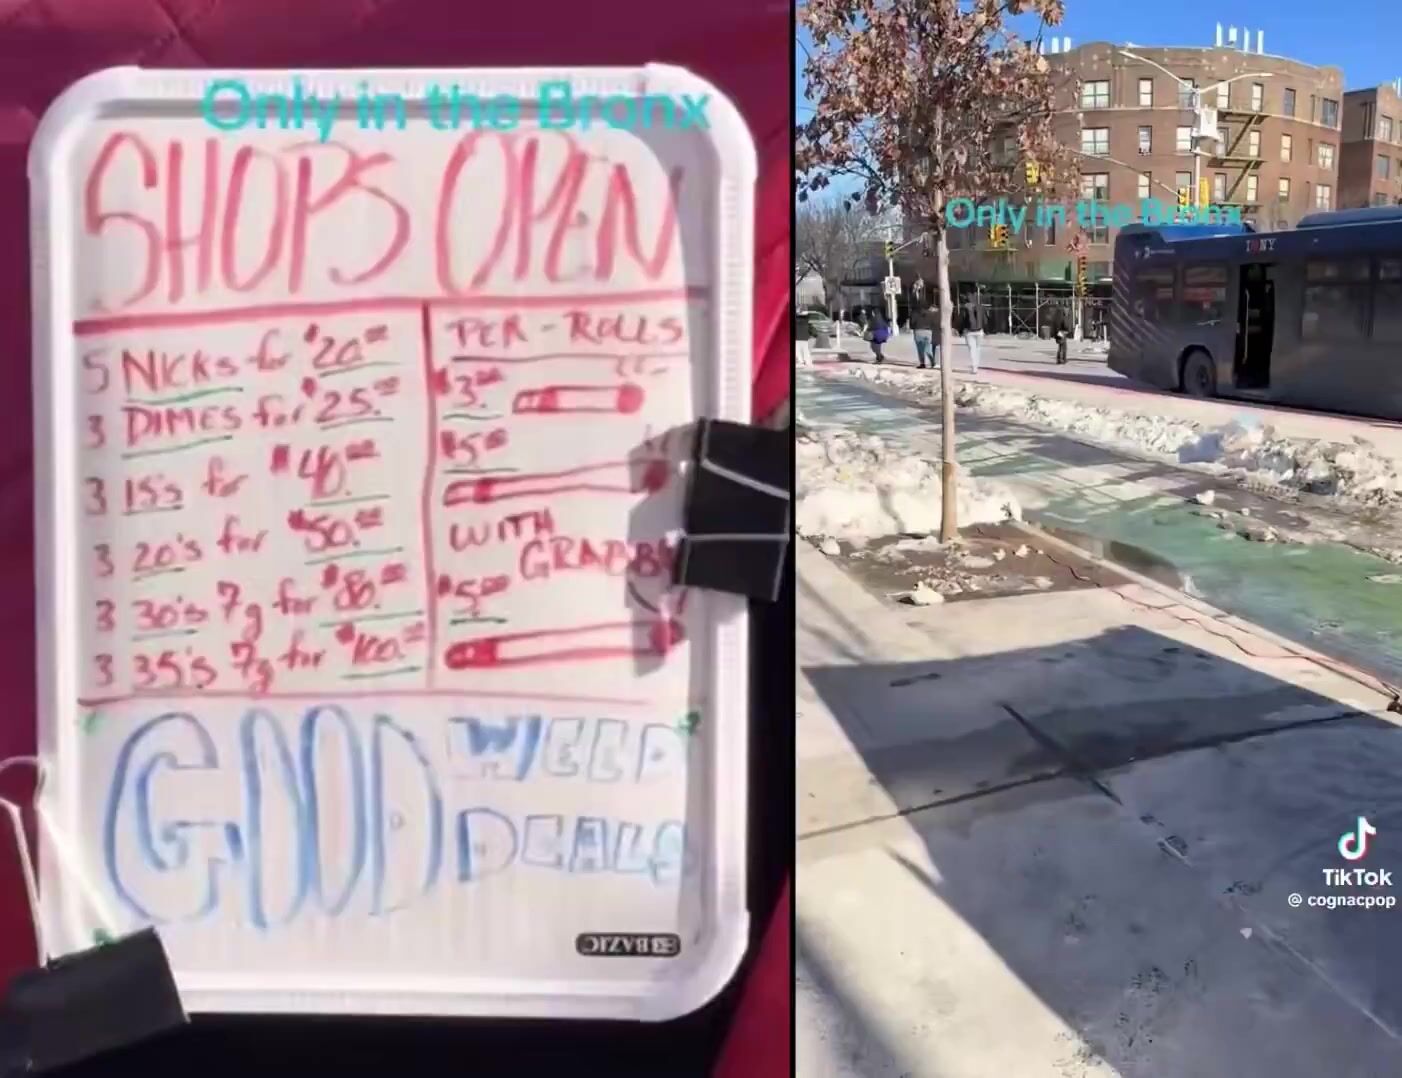 Only in the Bronx
SHOPS OPEN
5 NICKS for $20.00
3 DIMES for $25.00
3 15's for $40.00
3 20's for $50.00
3 30's 7g for $80.00
3 35's 7g for $100.00
PER-ROLLS
$3.00
$5.00
WITH
GRABBA
$5.00
GOOD WEED
DEALS
BAZIC
Only in the Bronx
NY
TikTok
@ cognacpop